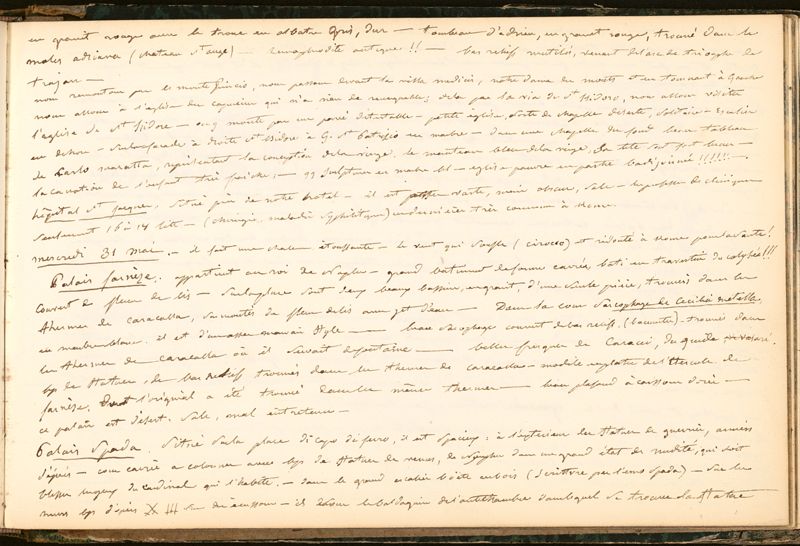 en granit rouge avec le tronc en albâtre gris, dur — tombeau d'adrien, en granit rouge, trouvé dans le
moles adriana (chateau St ange) — hermaphrodite antique !! — bas relief mutilés, venant de l'arc de triomphe de
trajan —
nous remontons par le monte pincio, nous passons devant la villa medicis, notre dame des monts et en tournant à gauche
nous allons à l'église des capucins qui n'a rien de remarquable; de là par la via di St Isidoro, nous allons visiter
l'église de St Isidore — on y monte par un pavé détestable — petite église, sorte de chapelle déserte, solitaire — escalier
en dehors — sur la façade à droite St Isidore à G. St Patrizio en marbre — dans une chapelle du fond beau tableau
de Carlo maratta, représentant la conception de la vierge, le manteau bleu de la vierge, la tête sont fort beaux —
la carnation de l'enfant très fraiche; — 99 sculptures en marbre bl — église pauvre en partie badigeonnée !!!!!! —
hôpital St jacques, situé près de notre hôtel — il est vaste, mais obscur, sale — le professeur de clinique
seulement 16 à 17 lits — (chirurgie, maladies syphilitiques) ces dernières très communes à Rome.
mercredi 31 mai. — il fait une chaleur étouffante — le vent qui souffle (cirocco) est redouté à Rome pour la santé!
Palais farnèse. appartient au roi de Naples — grand bâtiment de forme carrée, bâti en travertin du colysée!!!
couvert de fleurs de lis — sur la place sont deux beaux bassins, en granit, d'une seule pièce, trouvés dans les
thermes de caracalla, surmontés de fleurs de lis avec jet d'eau — Dans la cour sarcophage de Cecilia metella,
en marbre blanc. il est d'un assez mauvais style — beau sarcophage couvert de bas reliefs. — trouvés dans
les thermes de caracalla où il servait de fontaine — belles fresques de Caracci, du guide
bp de statues, de bas reliefs trouvés dans les thermes de caracalla — modèle en plâtre de l'Hercule de
farnèse. dont l'original a été trouvé dans les mêmes thermes — beau plafond à caissons dorés —
ce palais est désert, sale, mal entretenu —
Palais Spada. Situé sur la place di capo di ferro, il est spacieux: à l'extérieur des statues de guerriers, armés
d'épées — cour carrée à colonnes avec bp de statues de venus, de nymphes dans un grand état de nudité, qui doit
blesser les yeux du cardinal qui l'habite. — dans le grand escalier boîte en bois — sur les
murs bp d'épées — et dessous le baldaquin de l'antichambre dans lequel se trouve la statue